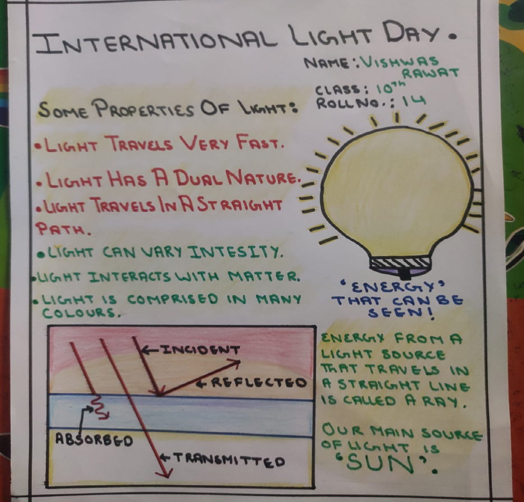 INTERNATIONAL LIGHT DAY.
NAME: VISHWAS
RAWAT
CLASS: 10th
ROLL NO.: 14
SOME PROPERTIES OF LIGHT:
•LIGHT TRAVELS VERY FAST.
•LIGHT HAS A DUAL NATURE.
•LIGHT TRAVELS IN A STRAIGHT
PATH.
•LIGHT CAN VARY INTESITY.
•LIGHT INTERACTS WITH MATTER.
•LIGHT IS COMPRISED IN MANY
COLOURS.
'ENERGY'
THAT CAN BE
SEEN!
INCIDENT
REFLECTED
ABSORBED
TRANSMITTED
ENERGY FROM A
LIGHT SOURCE
THAT TRAVELS IN
A STRAIGHT LINE
IS CALLED A RAY.
OUR MAIN SOURCE
OF LIGHT IS
'SUN'.